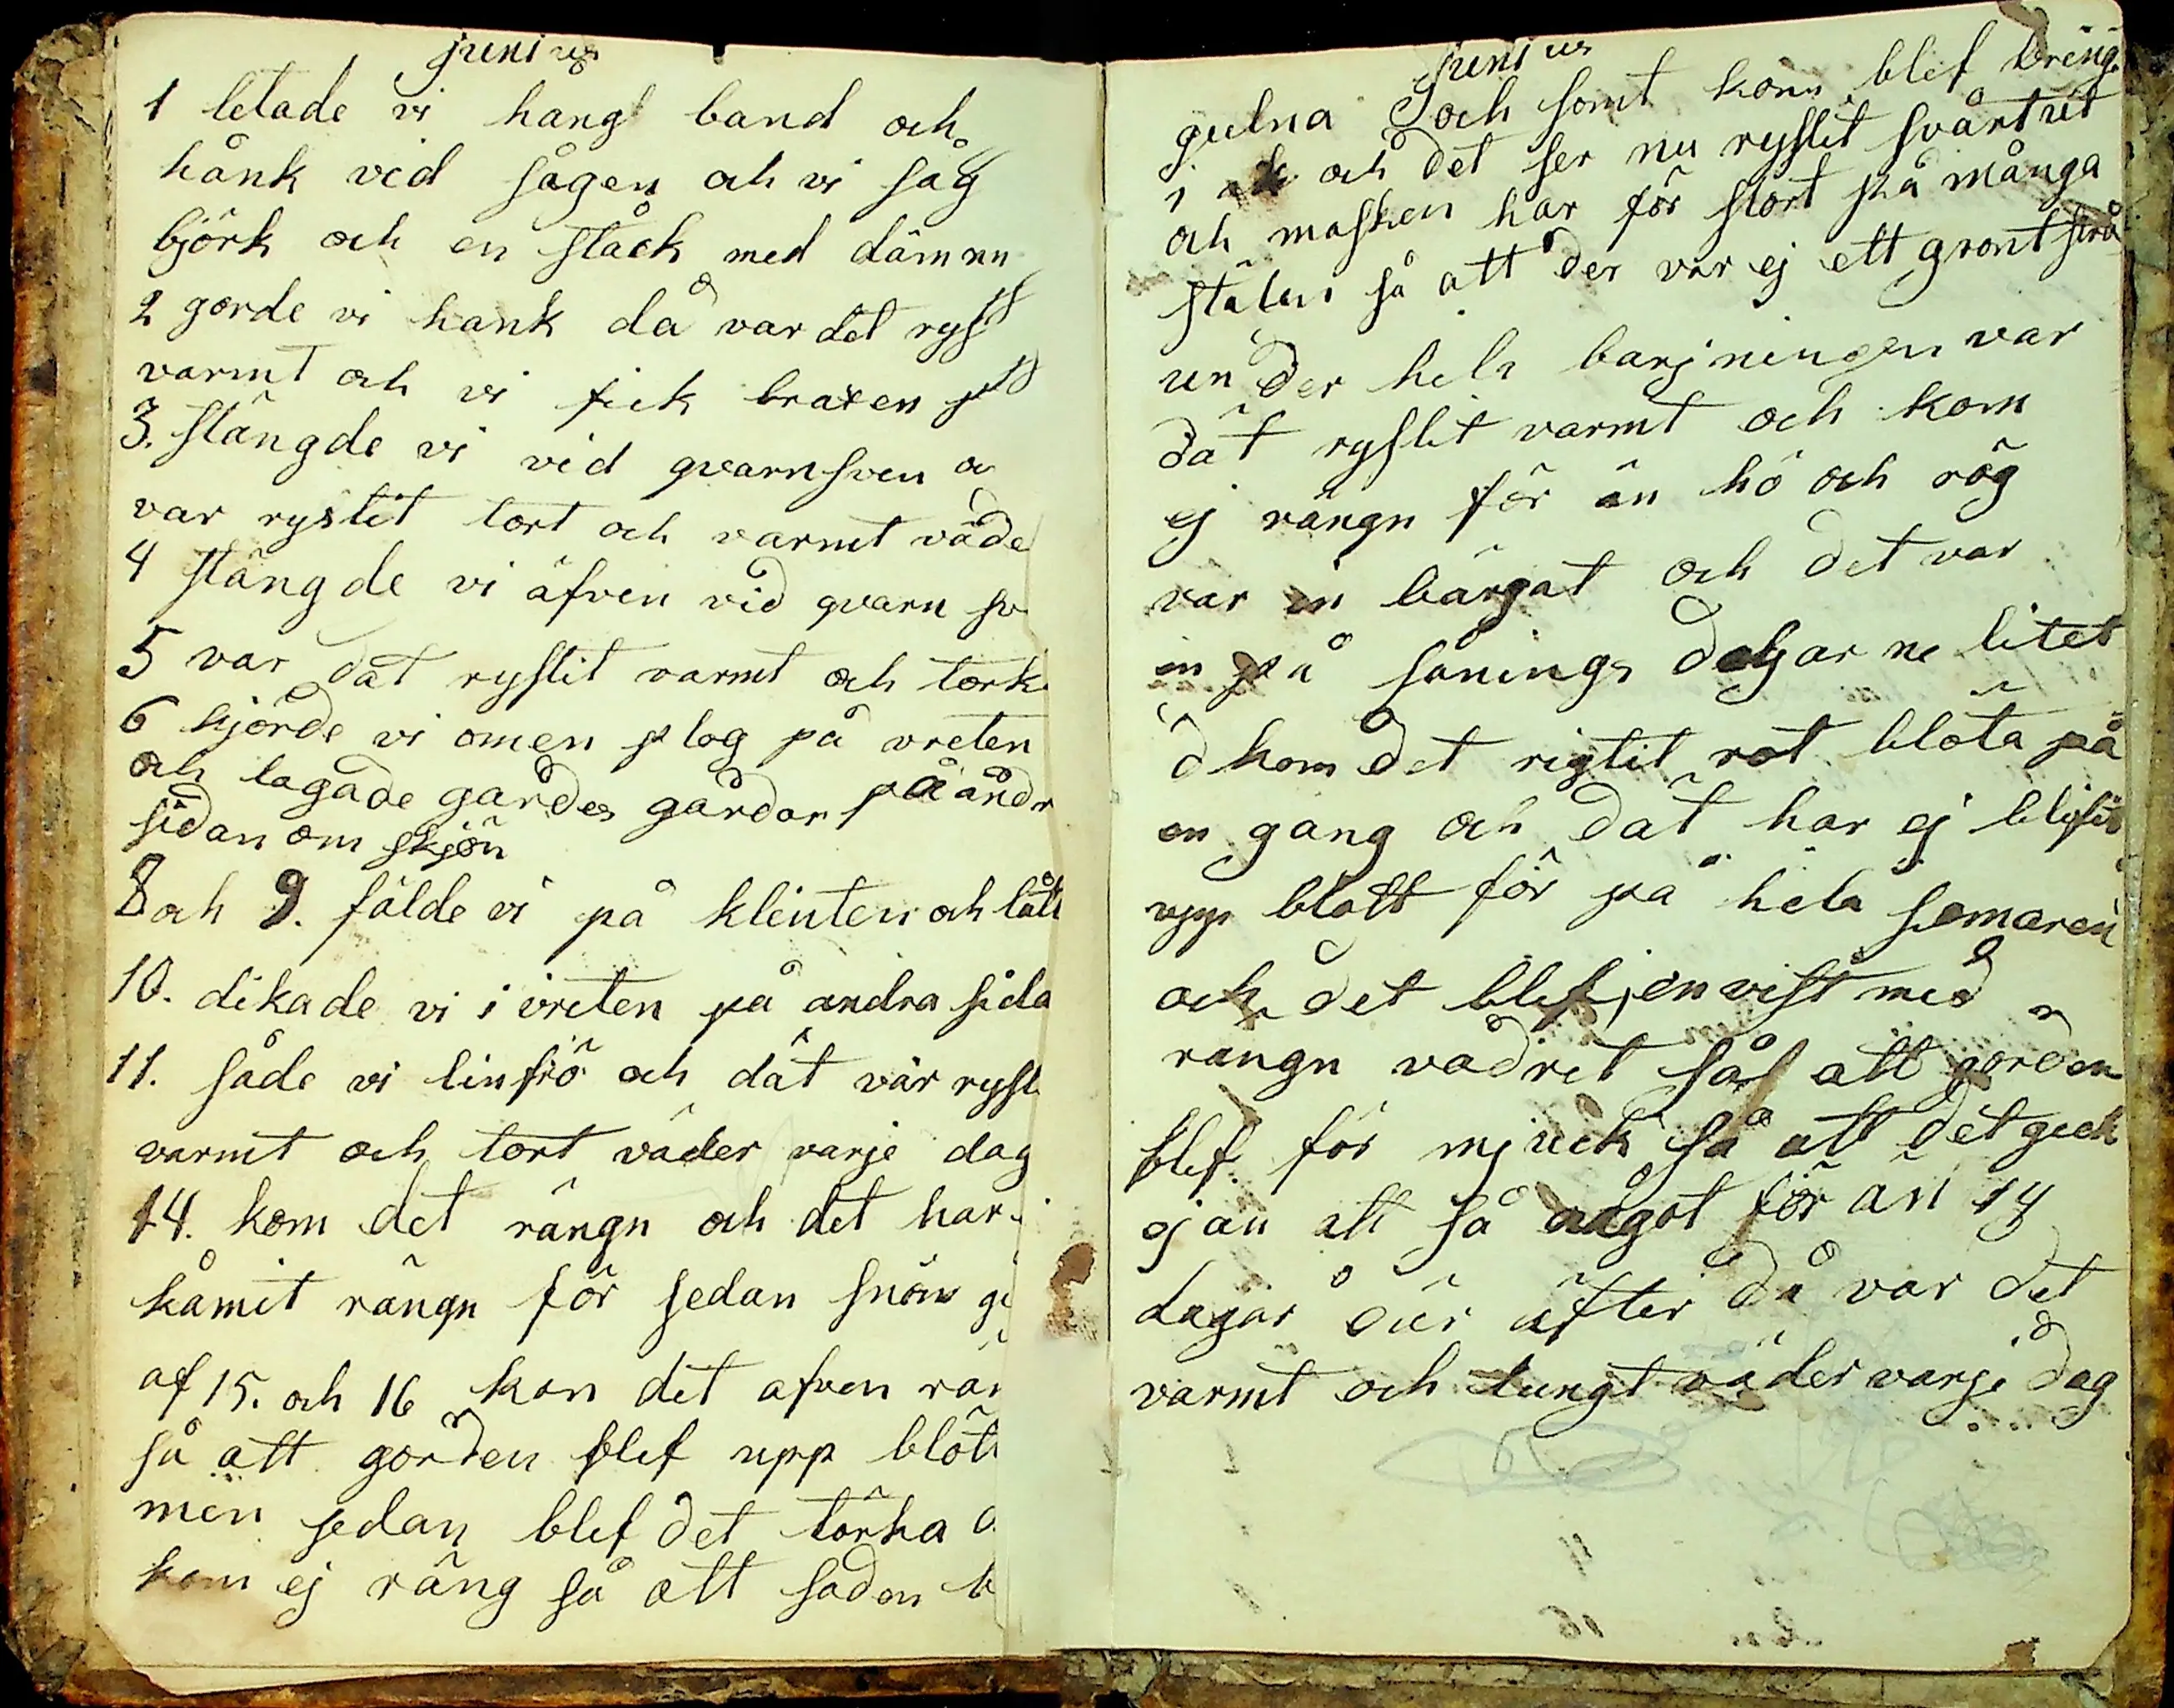 junius
1 letade vi hang band och
hånk vid sågen och vi såg
björk och en ståck med dämnn
2 gorde vi hank då var det rysl
varmt och vi fick braxen
3. stängde vi vid qvarnsven o
var ryslit tort och varmt väde
4 stängde vi äfven vid qvarn sv
5 var dät ryslit varmt och tork
6 kjörde vi omen plog på vreten
och lagade gardes gårdar på andr
sidan om skjön
8 och 9. fälde vi på klinten och
10. dikade vi i vreten på andra sida
11. såde vi linfrö och dät var rysl
varmt och tort väder varje dag
14. kom det rängn och det har
kåmit rängn för sedan snön gi
af 15. och 16 kom det äfven rän
så att gorden blef upp blöt
men sedan blef det törka o
kom ej räng så att saden b
Junius
gulna och somt korn blef bring
i och det ser nu ryslit svårt ut
och masken har för stört på många
stälen så att der var ej ett gront strå
under hela barjningen var
dät ryslit varmt och kom
ej rängn för än hö och råg
var in bärgat och det var
in på sånings dagarne litet
d kom det rigtit rot blöta på
en gang och dät har ej blifit
upp blött för på hela somaren
och det blef jenvist med
rängn vädret så att gorden
blef för mjuck så att det geck
ej an att så något för än 14
dagar där äfter då var det
varmt och lungt väder varje dag